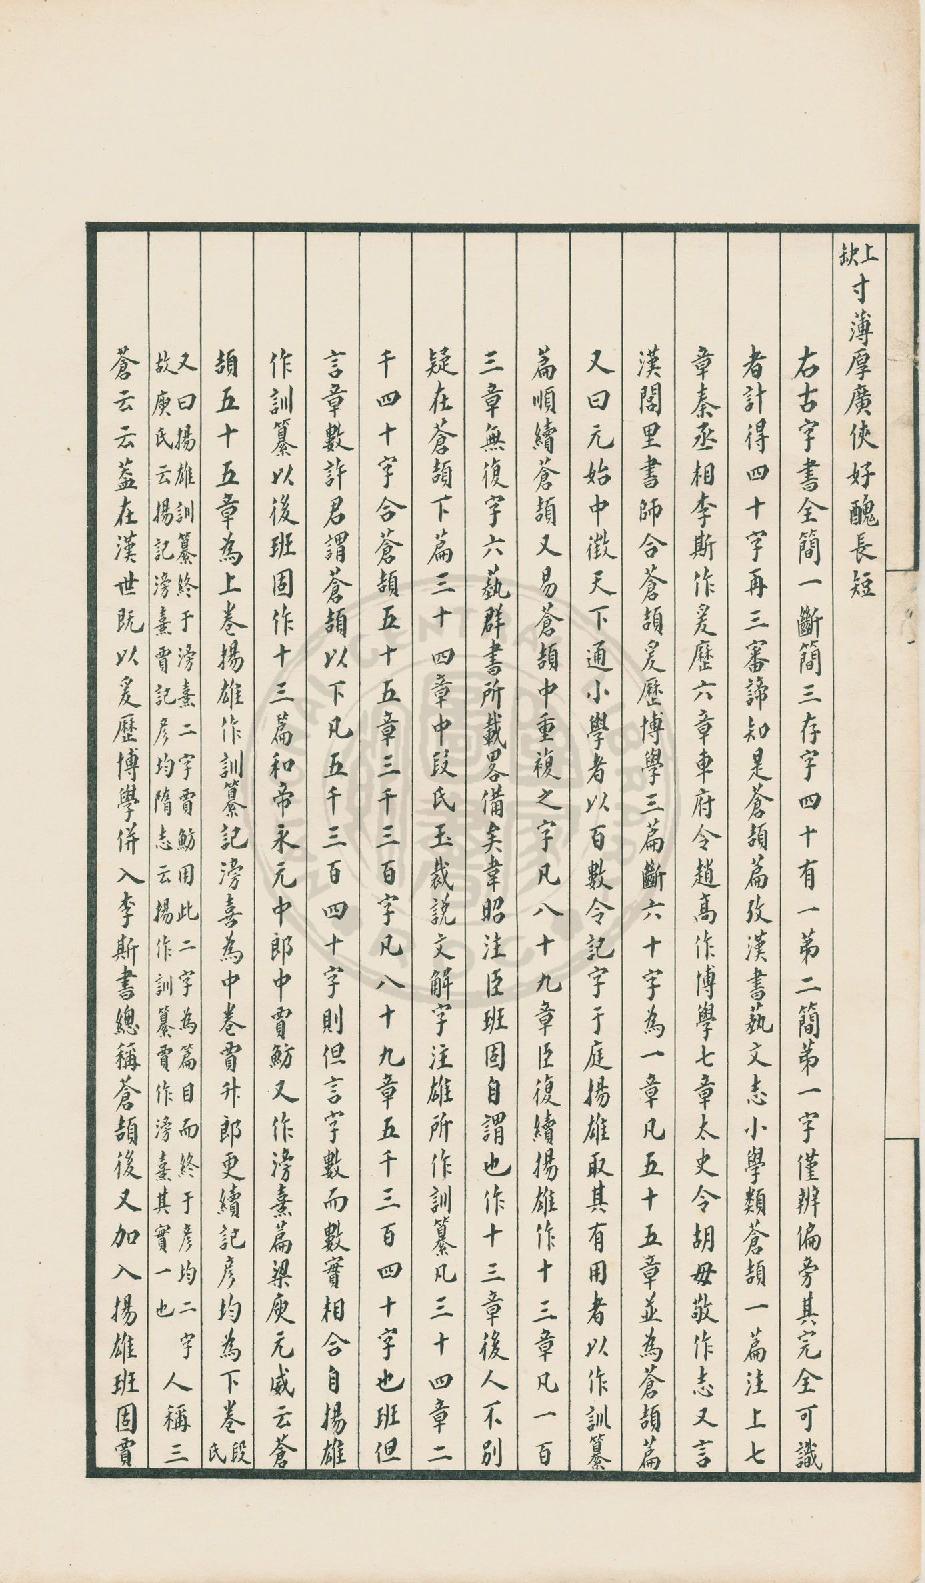 上缺寸薄厚廣俠好醜長短
右古字書全簡一斷簡三存字四十有一第二簡第一字僅辨偏旁其完全可識
者計得四十字再三審諦知是蒼頡篇攷漢書蓺文志小學類蒼頡一篇注上七
章秦丞相李斯作爰歷六章車府令趙高作博學七章太史令胡毋敬作志又言
漢閭里書師合蒼頡爰歷博學三篇斷六十字為一章凡五十五章並為蒼頡篇
又曰元始中徵天下通小學者以百數令記字于庭揚雄取其有用者以作訓纂
篇順續蒼頡又易蒼頡中重複之字凡八十九章臣復續揚雄作十三章凡一百
三章無復字六蓺群書所載畧備矣韋昭注臣班固自謂也作十三章後人不別
疑在蒼頡下篇三十四章中段氏玉裁說文解字注雄所作訓纂凡三十四章二
千四十字合蒼頡五十五章三千三百字凡八十九章五千三百四十字也班但
言章數許君謂蒼頡以下凡五千三百四十字則但言字數而數實相合自揚雄
作訓纂以後班固作十三篇和帝永元中郎中賈魴又作滂熹篇梁庾元威云蒼
頡五十五章為上卷揚雄作訓纂記滂喜為中卷賈升郎更續記彦均為下卷段氏
又曰揚雄訓纂終于滂熹二字賈魴用此二字為篇目而終于彦均二字
故庾氏云揚記滂熹賈記彦均隋志云揚作訓纂賈作滂熹其實一也
人稱三
蒼云云葢在漢世既以爰歷博學併入李斯書總稱蒼頡後又加入揚雄班固賈